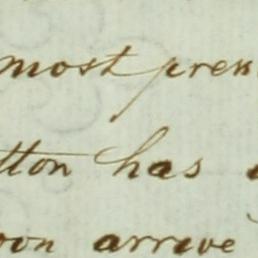 most pres
tton has
oon arrive